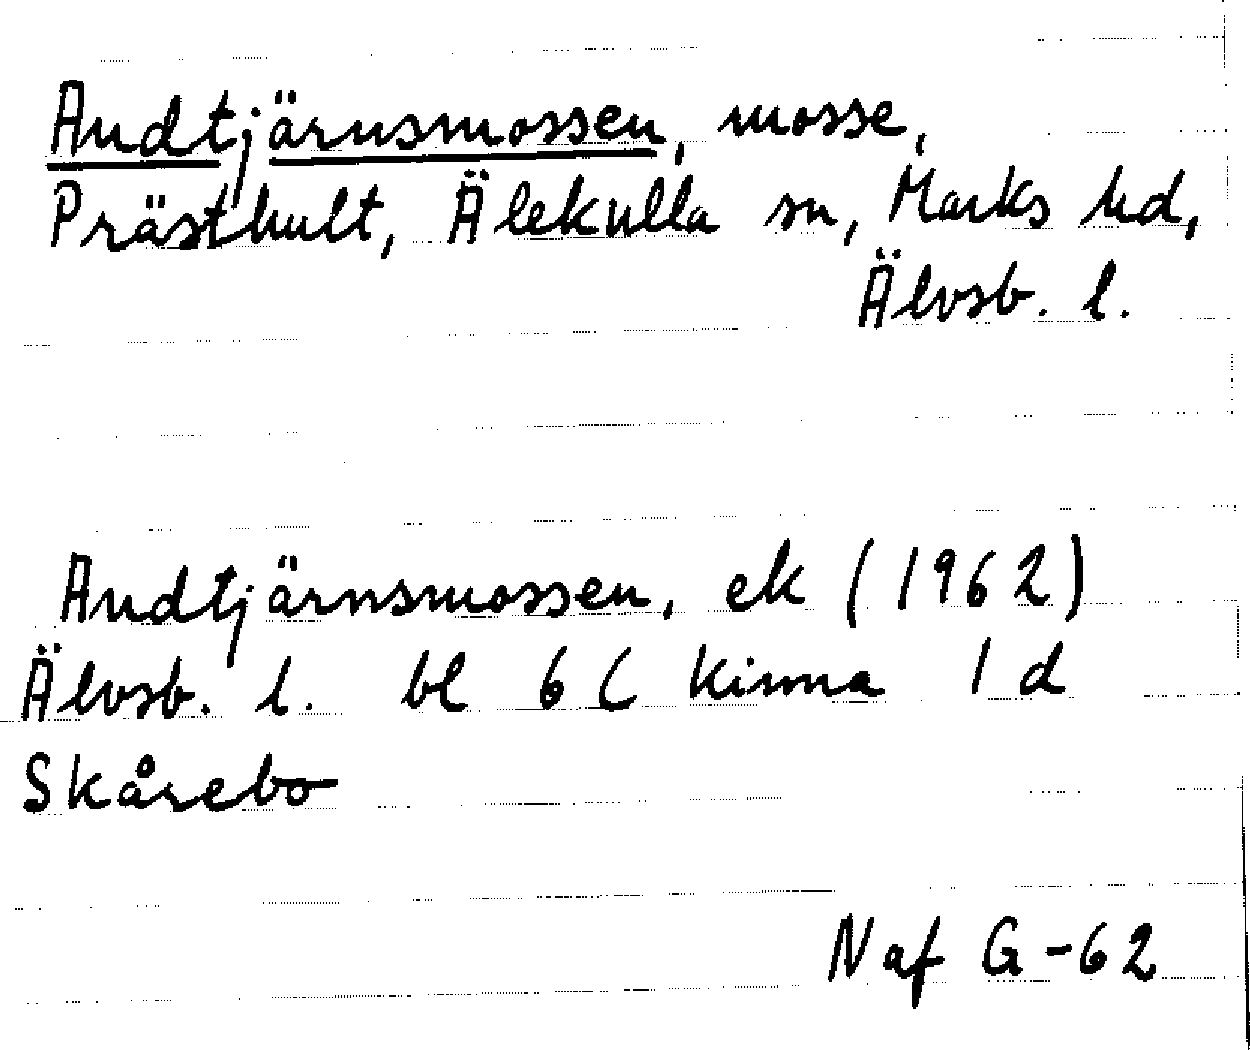 Andtjärnsmossen, mosse,
Prästhult, Älekulla sn, Marks hd,
Älvsb. l.
Andtjärnsmossen, ek (1962)
Älvsb. l. bl 6 C Kinna 1 d
Skårebo
N af G-62